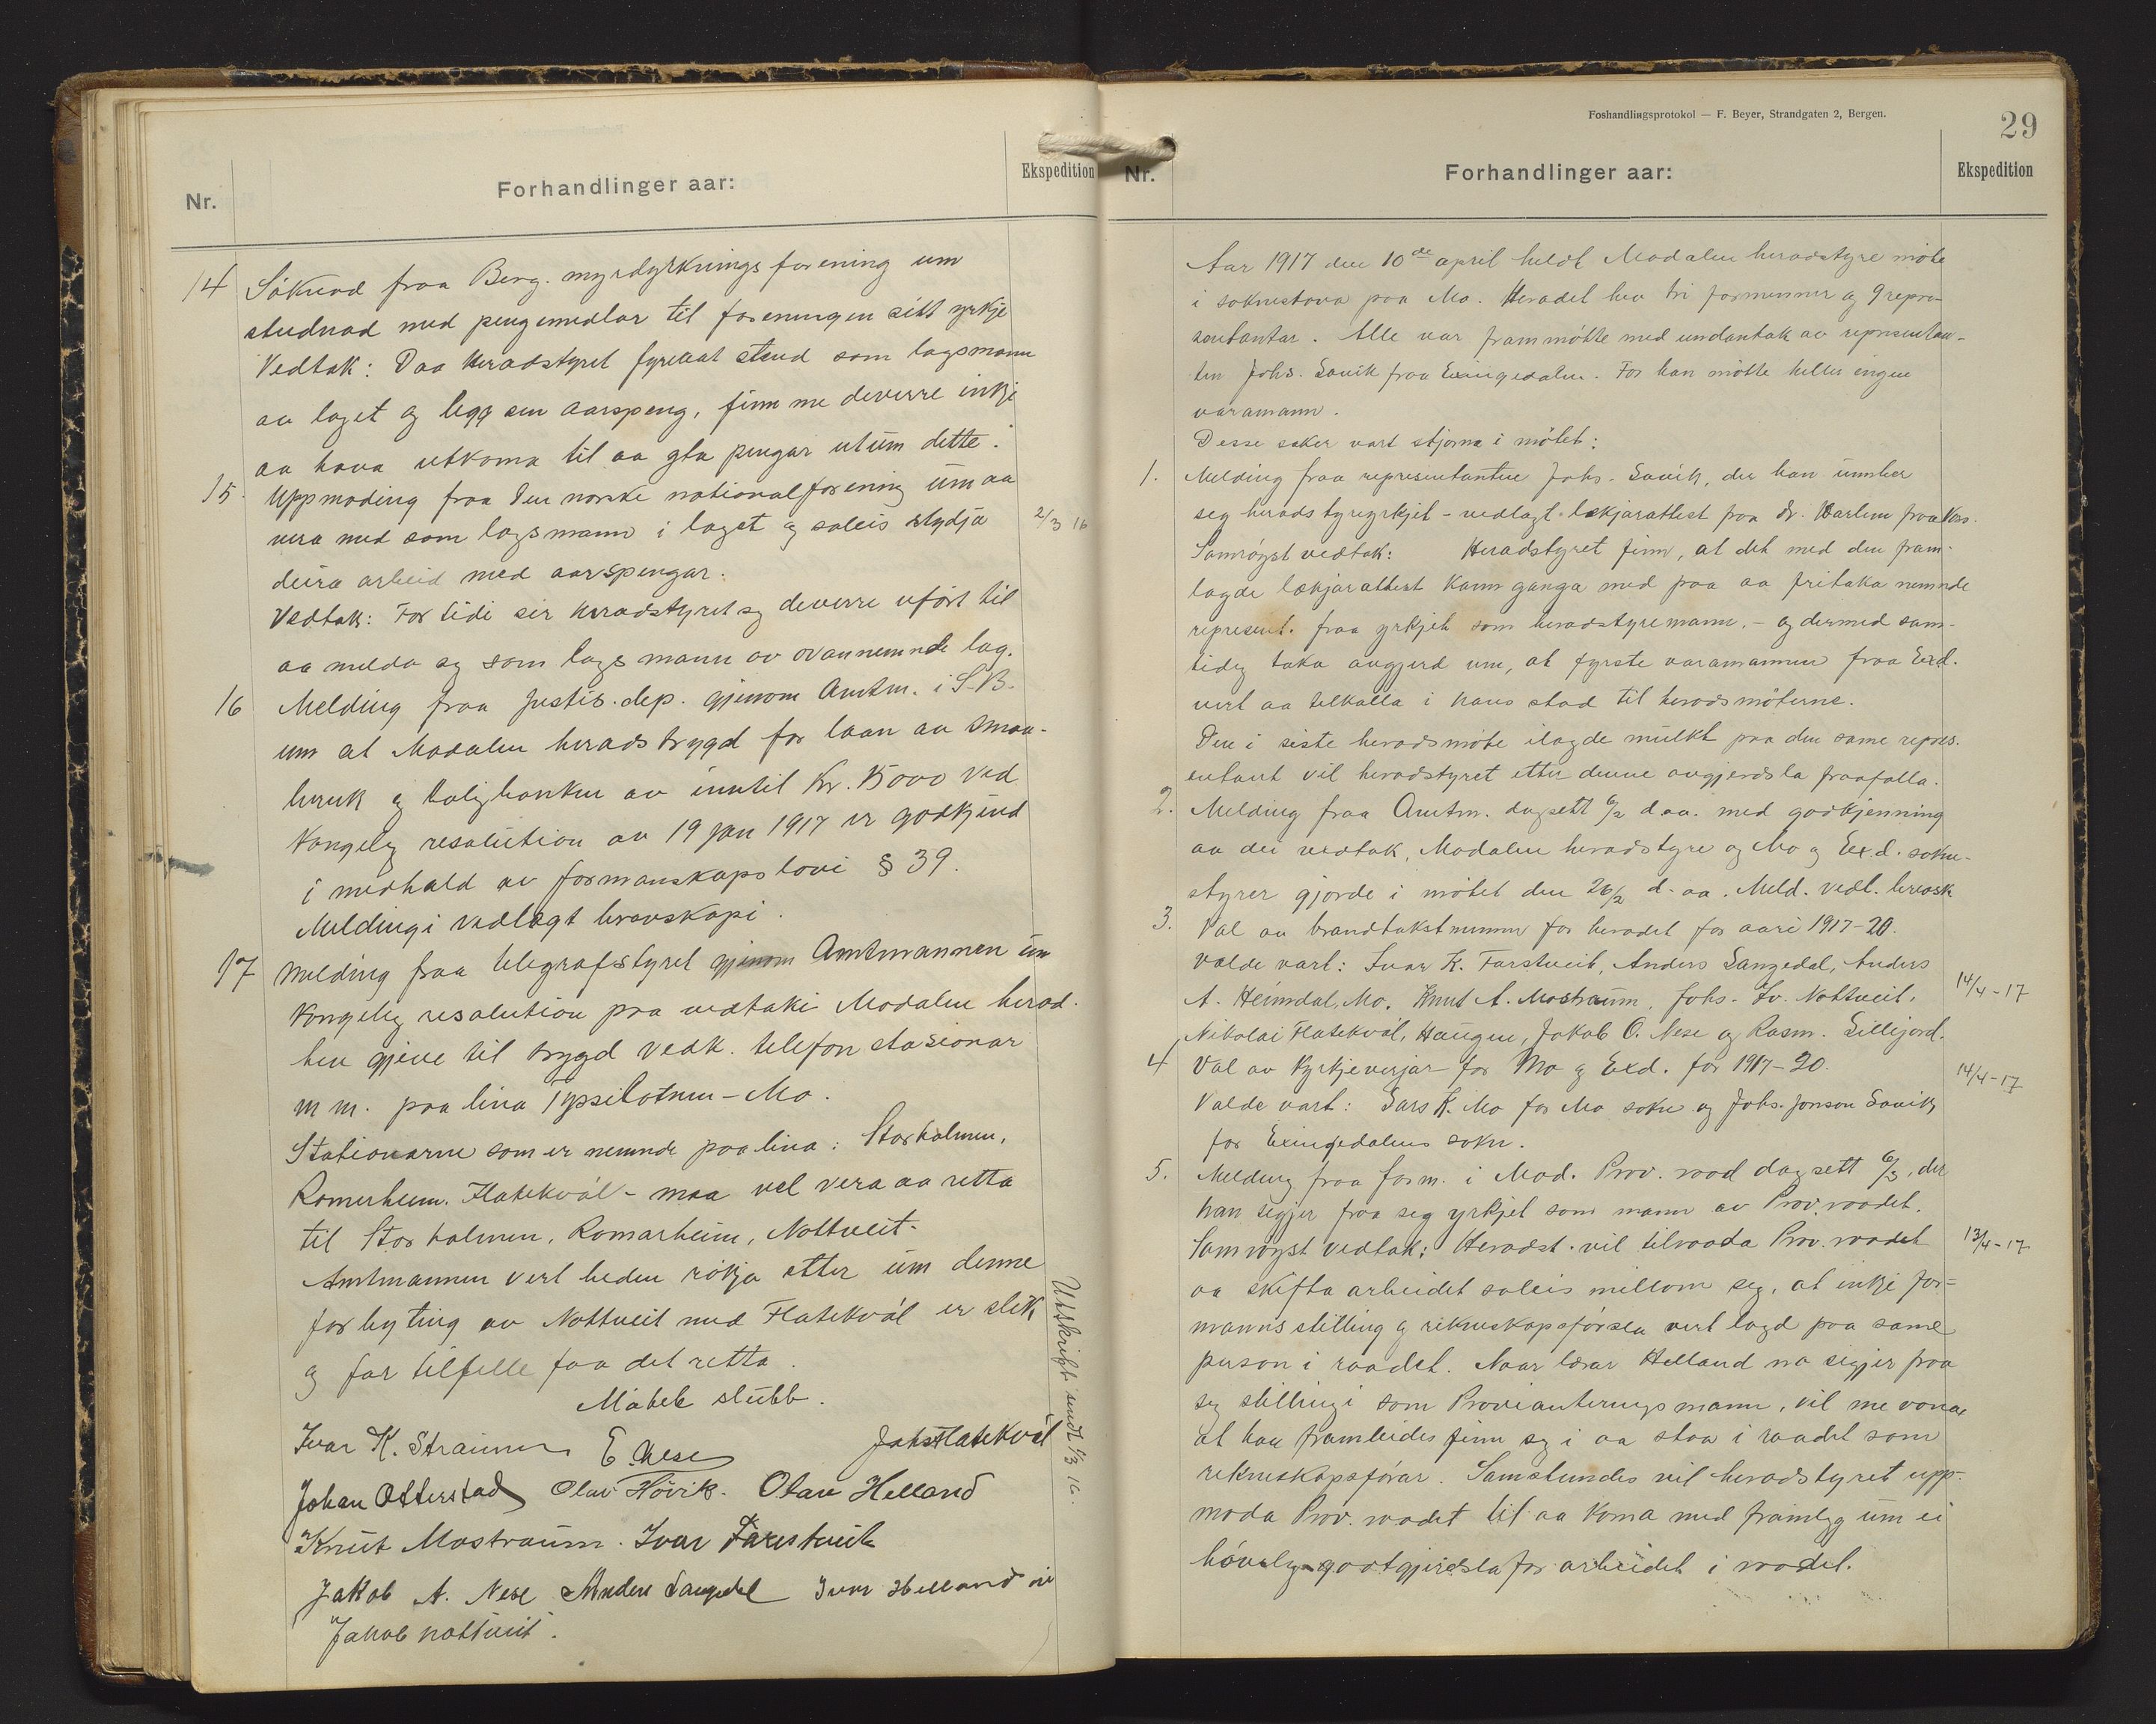 Nr.
Forhandlinger aar:
Ekspedition
14 Søknad fraa Berg. myrdyrknings forening um
studnad med pengemedlar til foreningen sitt yrkje
Vedtak: Daa heradstyret fyreaat stend som lagsmann
av laget og legg sin aarspeng, finn me deverre inkje
aa hava utkoma til aa gta pengar utum dette.
15. Uppmoding fraa Den norske nationalforening um aa
vera med som lagsmann i laget og soleis stydja
2/3 16
deira arbeid med aarspengar.
Vedtak: For tidi ser heradstyret sg deverre uført til
aa melda sg som lagsmann av ovannemnde lag.
16 Melding fraa Justis. dep. gjenom Amtm. i S-B.
um at Modalen herads trygd for laan av smaa-
bruk og boligbanken av inntil Kr. 15000 ved
Kongeleg resolution av 19 jan 1917 er godkjend
i medhald av formanskapslovi § 39.
Meldingi vedlagt brevskapi.
17 Melding fraa telegrafstyret gjenom Amtmannen um
Kongeleg resolution paa vedtaki Modalen herad
hev gjeve til trygd vedk. telefon stasionar
m m. paa lina Typsilotnen - Mo.
Stationarne som er nemnde paa lina: Storholmen,
Romerheim. Flatekvål - maa vel vera aa retta
til Stor holmen, Romarheim, Nottveit.
Amtmannen vert beden røkja etter um denne
forbyting av Nottveit med Flatekvål er slik
og for tilfelle faa det retta.
Møtet slutt.
Utskrift sendt 1/3 16.
Ivar K. Straumen E Nese Johs Flatekvål
Johan Otterstad Olav Høvik. Olav Helland
Knut Mostraum. Ivar Farestveit
Jakob A. Nese Anders Langedal Ivar Helland
Jakob Nottveit.
Foshandlingsprotokol — F. Beyer, Strandgaten 2, Bergen.
29
Nr.
Forhandlinger aar:
Ekspedition
Aar 1917 den 10de april heldt Modalen heradstyre møte
i soknestova paa Mo. Heradet hev tri formenner og 9 repre-
sentantar. Alle var frammøtte med undantak av representan-
ten Johs. Lavik fraa Exingedalen. For han møtte heller ingen
varamann.
Desse saker vart stjorna i møtet:
1. Melding fraa representanten Johs. Lavik, der han unnber
seg herads tyreyrkjet - vedlagt lækjarattest paa dr. Warlem fraa Vos.
Samrøyst vedtak: Heradstyret finn, at det med den fram-
lagde lækjarattest kann ganga med paa aa fritaka nemnde
represent. fraa yrkjet som heradstyremann. - og dermed sam-
tideg taka avgjerd um, at fyrste varamannen fraa Exd.
vert aa tilkalla i hans stad til heradsmøterne.
Den i siste heradsmøte ilagde mulkt paa den same repres-
entant vil heradstyret etter denne avgjerdsla fraafalla.
2. Melding fraa Amtm. dagsett 6/2 d aa. med godkjenning
av dei vedtak, Modalen heradstyre og Mo og Exd. sokne-
styrer gjorde i møtet den 26/2 d. aa. Meld. vedl. brevsk
3. Val av brandtakstmenn for heradet for aari 1917-20.
Valde vart: Ivar K. Farstveit, Anders Langedal, Anders
A. Heimdal, Mo. Knut A. Mostraum, Johs. Iv. Nottveit,
14/4-17
Nikolai Flatekvål, Haugen, Jakob O. Nese og Rasm. Lillejord.
4 Val av Kyrkjeverjar for Mo og Exd. for 1917-20.
14/4-17
Valde vart: Lars K. Mo for Mo sokn og Johs. Jonson Lavik
for Exingedalens sokn.
5. Melding fraa form. i Mod. Prov. raad dagsett 6/3, der
han sigjer fraa seg yrkjet som mann av Prov. raadet.
Samrøyst vedtak: Heradst. vil tilraada Prov. raadet
13/4-17
aa skifta arbeidet soleis millom seg, at inkje for-
manns stilling og rekneskapsførsla vert lagd paa same
person i raadet. Naar lærar Helland no sigjer fraa
seg stillingi som Provianteringsmann, vil me vona
at han framleides finn sg i aa staa i raadet som
rekneskapsførar. Samstundes vil heradstyret upp-
moda Prov. raadet til aa koma med framlegg um ei
høveleg godtgjerdsla for arbeidet i raadet.